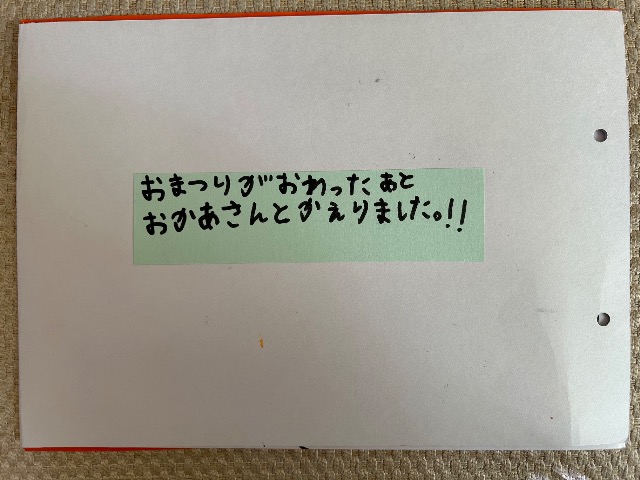 おまつりがおわったあと
おかあさんとかえりました。!!